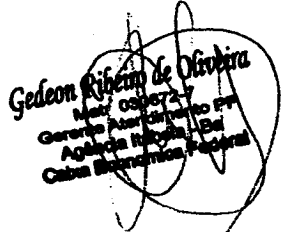 Gedeon Ribeiro de Oliveira
Matr 030672-7
Gerente Atendimento PF
Agência - Ba
Caixa Econômica Federal